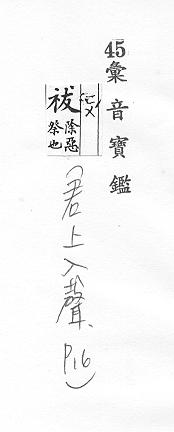 45彙音寶鑑
祓
除惡
祭也
(君上入聲、P.16)